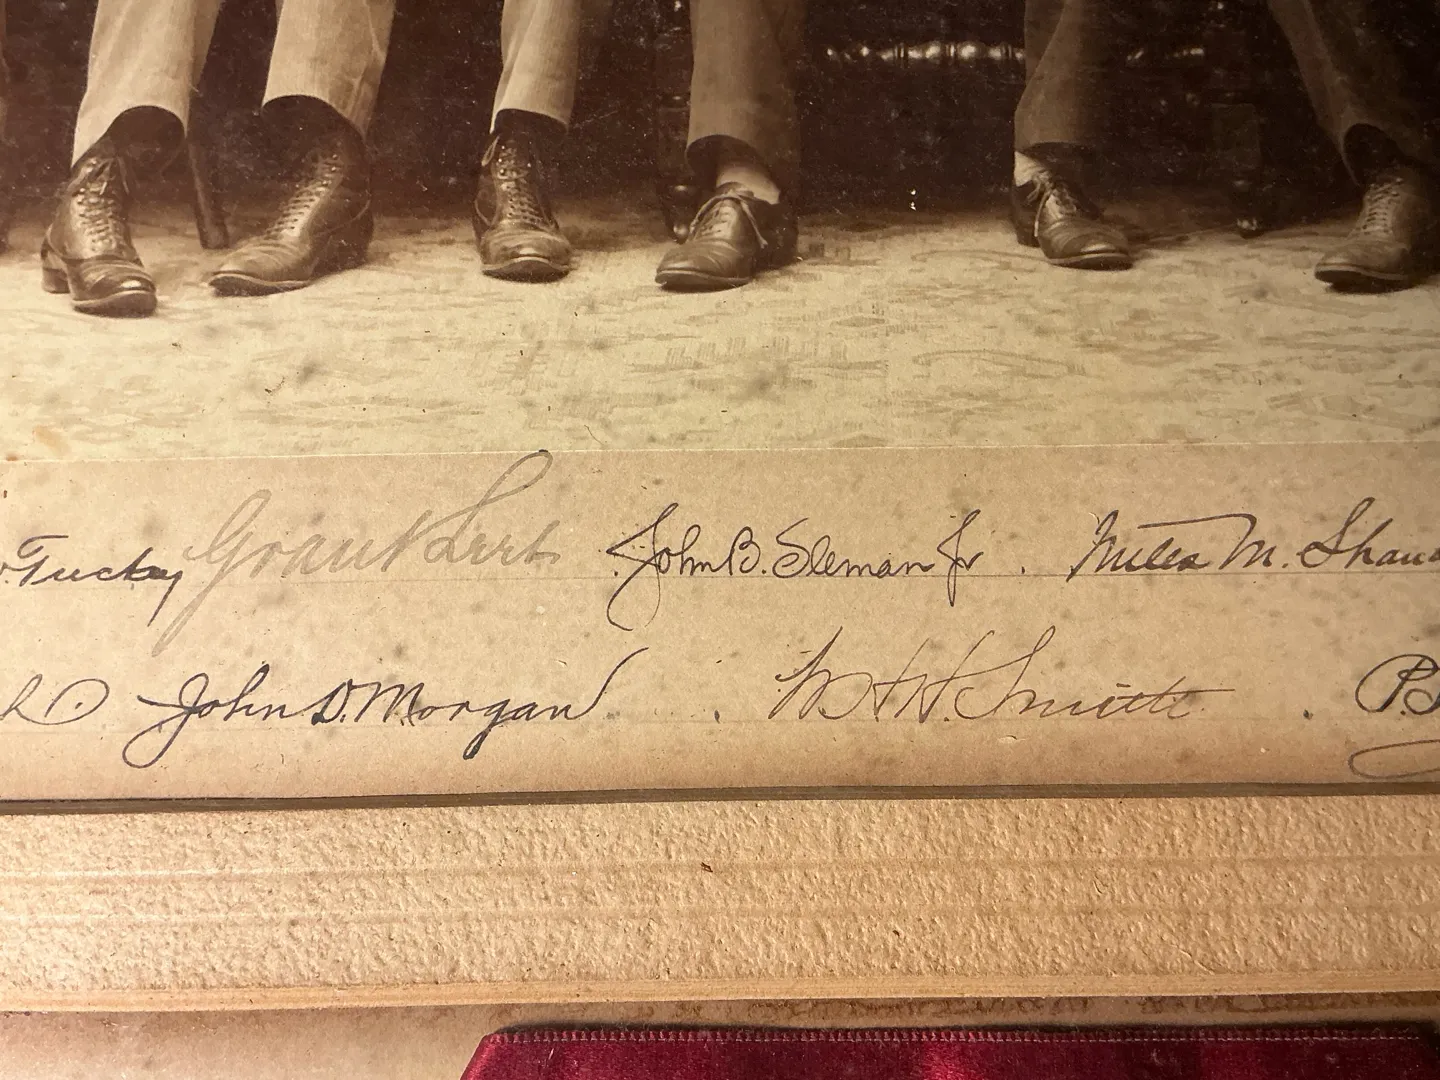 Tucky Grant Lert John B. Sleman Jr. Miles M. Shan
John D. Morgan W. H. H. Smith P.S